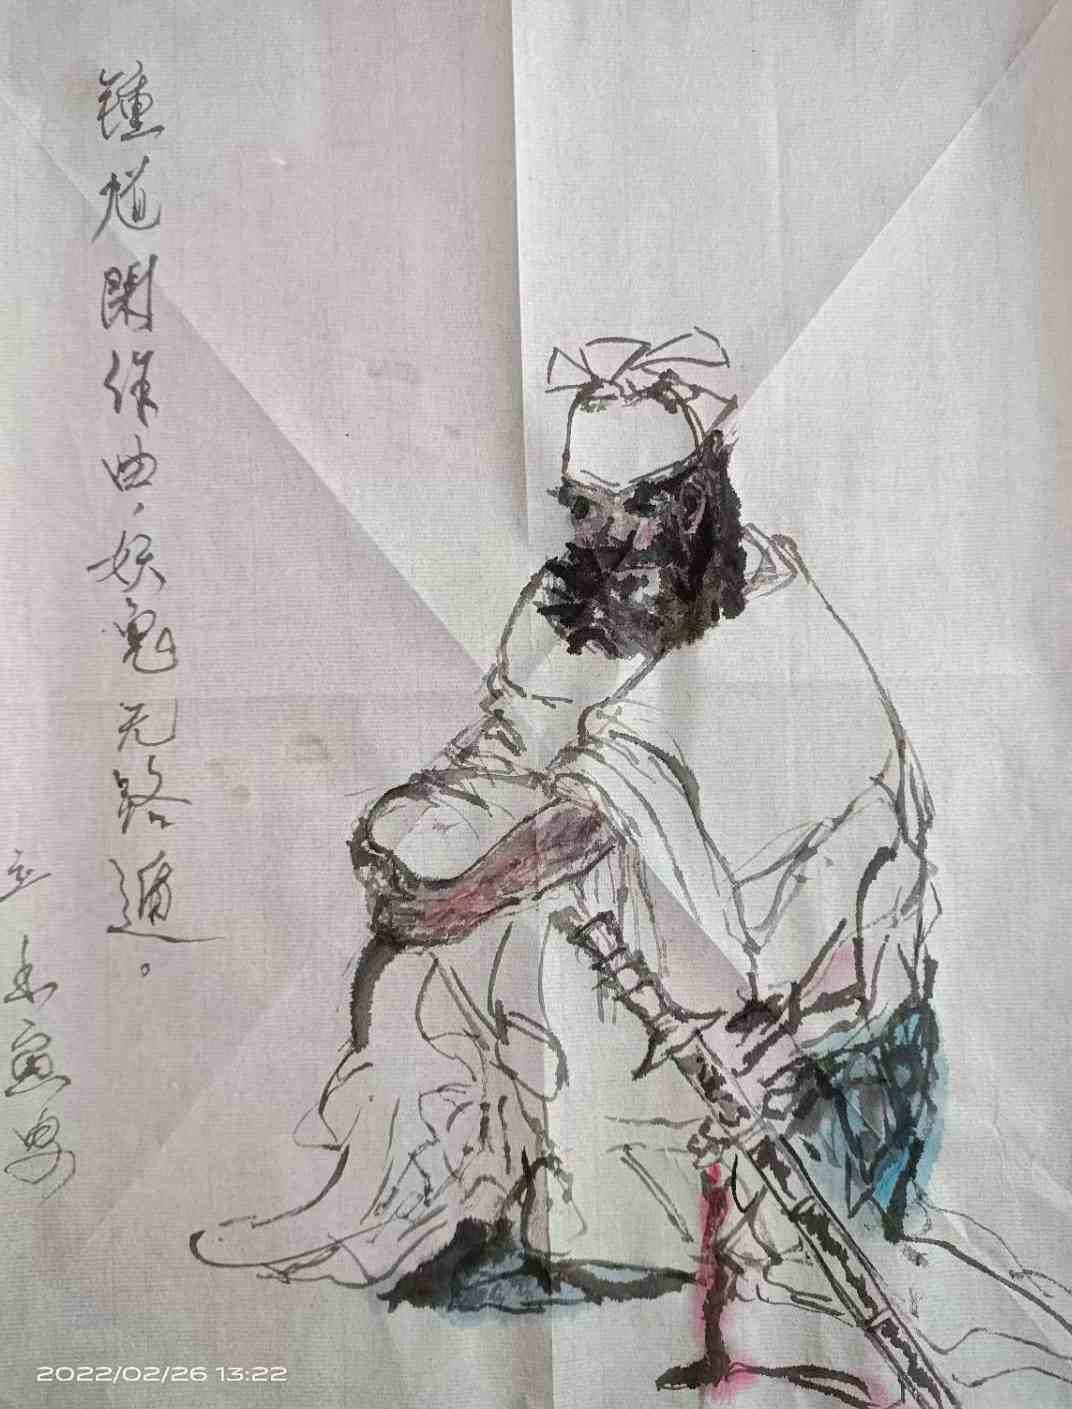 鍾馗閑作曲，妖鬼无路遁。
2022/02/26 13:22